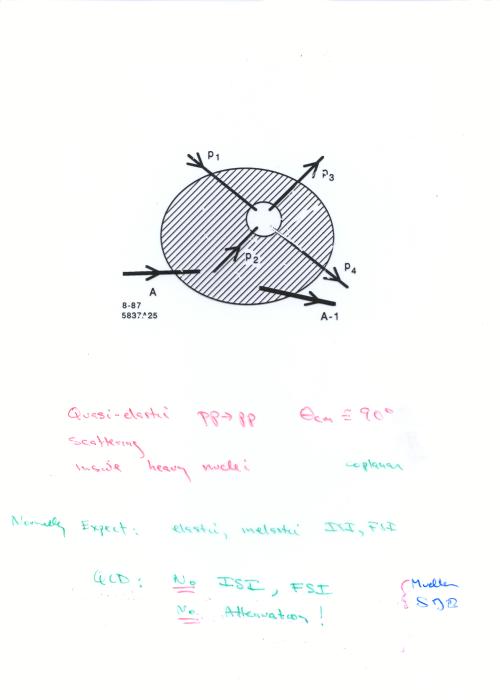 p1
p3
p2
p4
A
A-1
8-87
5837A25
Quasi-elastic pp→pp θcm ≅ 90°
scattering
inside heavy nuclei coplanar
Normally Expect: elastic, inelastic ISI, FSI
QCD: No ISI, FSI
No Attenuation!
Mueller
SJB